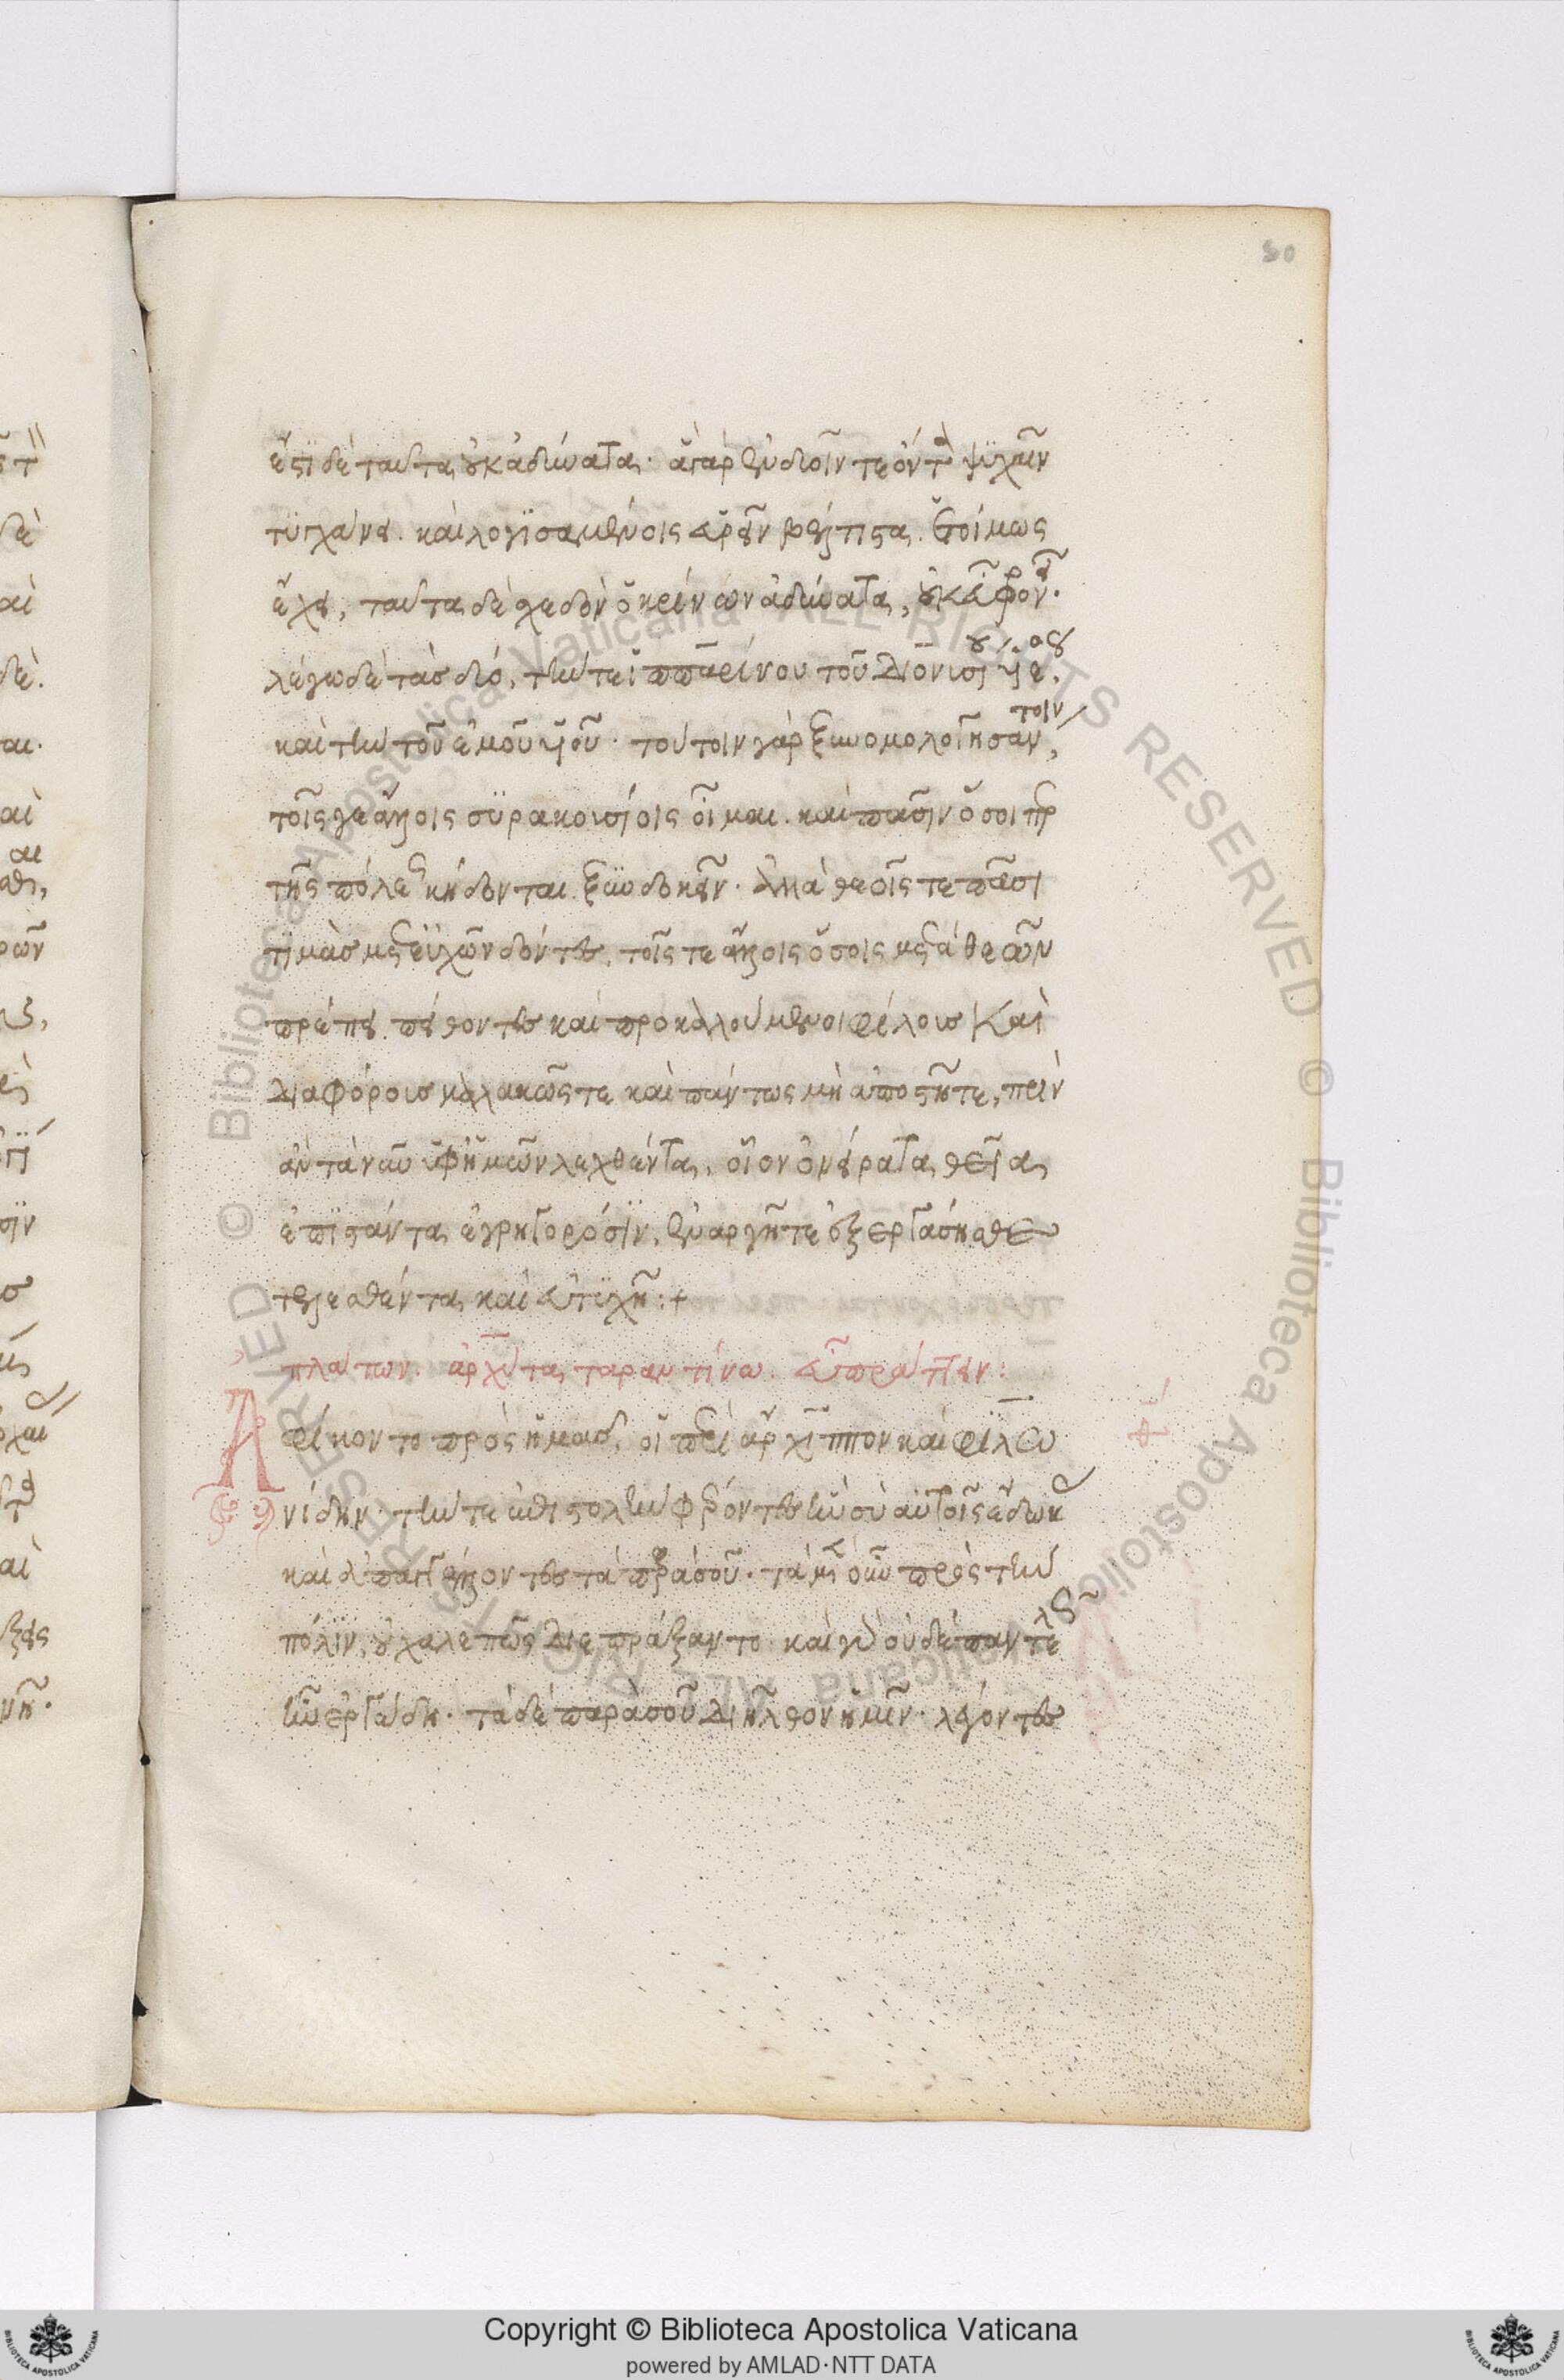 80
ἔστι δὲ ταῦτα οὐκ ἀδύνατα. ἃ γὰρ ἐν δυοῖν τε ὄντα ψυχαῖν
τυγχάνει. καὶ λογισαμένοις εὑρεῖν βέλτιστα. ἑτοίμως
ἔχει, ταῦτα δὲ σχεδὸν ὁ κρίνων ἀδύνατα, οὐκ εὖ φρονεῖ.
λέγω δὲ τὰς δύο, τήν τε ἱππαρίνου τοῦ Διονυσίου υἱέος.
καὶ τὴν τοῦ ἐμοῦ υἱοῦ. τούτοιν γὰρ ξυνομολογησάντοιν,
τοῖς γε ἄλλοις συρακουσίοις οἶμαι. καὶ πᾶσιν ὅσοι περ
τῆς πόλεως κήδονται. ξυνδοκεῖν. ἀλλὰ θεοῖς τε πᾶσι
τιμὰς μετ' εὐχῶν δόντες, τοῖς τε ἄλλοις ὅσοις μετὰ θεῶν
πρέπει. πείθοντες καὶ προκαλούμενοι φίλους Καὶ
διαφόρους μαλακῶς τε καὶ πάντως μὴ ἀποστῆτε, πρὶν
ἂν τὰ νῦν ὑφ' ἡμῶν λεχθέντα, οἷον ὀνείρατα θεῖα
ἐπιστάντα ἐγρηγορόσιν, ἐναργῆ τε ἐξεργάσησθε
τελεσθέντα καὶ εὐτυχῆ:+
πλάτων. ἀρχύτα ταραντίνω. εὖ πράττειν:
Ἀφίκοντο πρὸς ἡμᾶς, οἱ περὶ ἄρχιππον καὶ φιλω
νίδην. τήν τε ἐπιστολὴν φέροντες ἣν σὺ αὐτοῖς ἔδωκας
καὶ ἀπαγγέλλοντες τὰ παρὰ σοῦ. τὰ μὲν οὖν πρὸς τὴν
πόλιν, οὐ χαλεπῶς διεπράξαντο. καὶ γὰρ οὐδὲ παντελῶς
ἦν ἐργώδη. τὰ δὲ παρὰ σοῦ διῆλθον ἡμῖν. λέγοντες
Copyright © Biblioteca Apostolica Vaticana
powered by AMLAD·NTT DATA